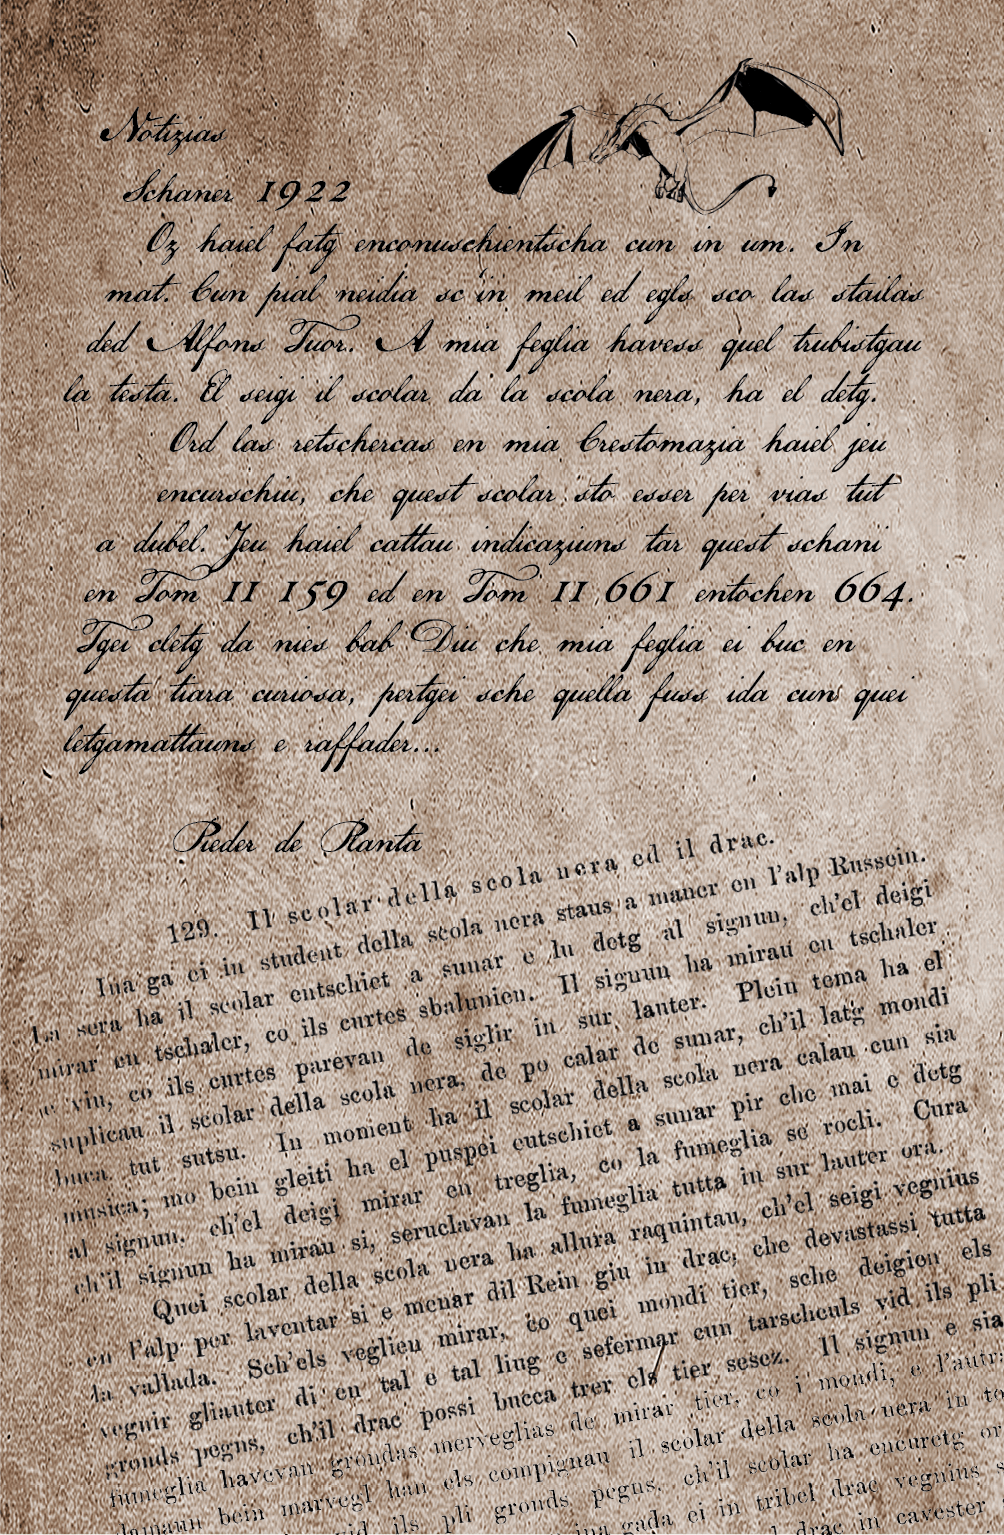 Notizias
Schaner 1922
Oz haiel fatg enconuschientscha cun in um. In
mat. Cun pial neidia sc'in meil ed egls sco las stailas
ded Alfons Tuor. A mia feglia havess quel trubistgau
la testa. El seigi il scolar da la scola nera, ha el detg.
Ord las retschercas en mia Crestomazia haiel jeu
encurschiu, che quest scolar sto esser per vias tut
a dubel. Jeu haiel cattau indicaziuns tar quest schani
en Tom II 159 ed en Tom II 661 entochen 664.
Tgei cletg da nies bab Diu che mia feglia ei buc en
questa tiara curiosa, pertgei sche quella fuss ida cun quei
letgamattauns e raffader...
Pieder de Planta
129. Il scolar della scola nera ed il drac.
Ina ga ei in student della scola nera staus a maner en l'alp Russein.
La sera ha il scolar entschiet a sunar e lu detg al signun, ch'el deigi
mirar en tschaler, co ils curtes sbalunien. Il signun ha mirau en tschaler
e viu, co ils curtes parevan de siglir in sur lauter. Plein tema ha el
suplicau il scolar della scola nera, de po calar de sunar, ch'il latg mondi
buca tut sutsu. In moment ha il scolar della scola nera calau cun sia
musica; mo bein gleiti ha el puspei entschiet a sunar pir che mai e detg
al signun, ch'el deigi mirar en treglia, co la fumeglia se rocli. Cura
ch'il signun ha mirau si, seruclavan la fumeglia tutta in sur lauter ora.
Quei scolar della scola nera ha allura raquintau, ch'el seigi vegnius
en l'alp per laventar si e menar dil Rein giu in drac, che devastassi tutta
la vallada. Sch'els veglien mirar, co quei mondi tier, sche deigien els
vegnir gliauter di en tal e tal liug e sefermar cun tarscheuls vid ils pli
gronds pegns, ch'il drac possi bucca trer els tier sesez. Il signun e sia
fumeglia havevan grondas merveglias de mirar tier, co i mondi, e l'autr
damaun bein marvegl han els compignau il scolar della scola nera in to
vid ils pli gronds pegns, ch'il scolar ha encuretg or
ina gada ei in tribel drac vegnius s
drac in cavester